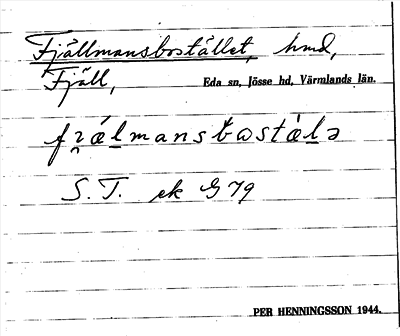 Fjällmansbostället, hmd,
Fjäll, Eda sn, Jösse hd, Värmlands län.
S. T. ek G 79
PER HENNINGSSON 1944.